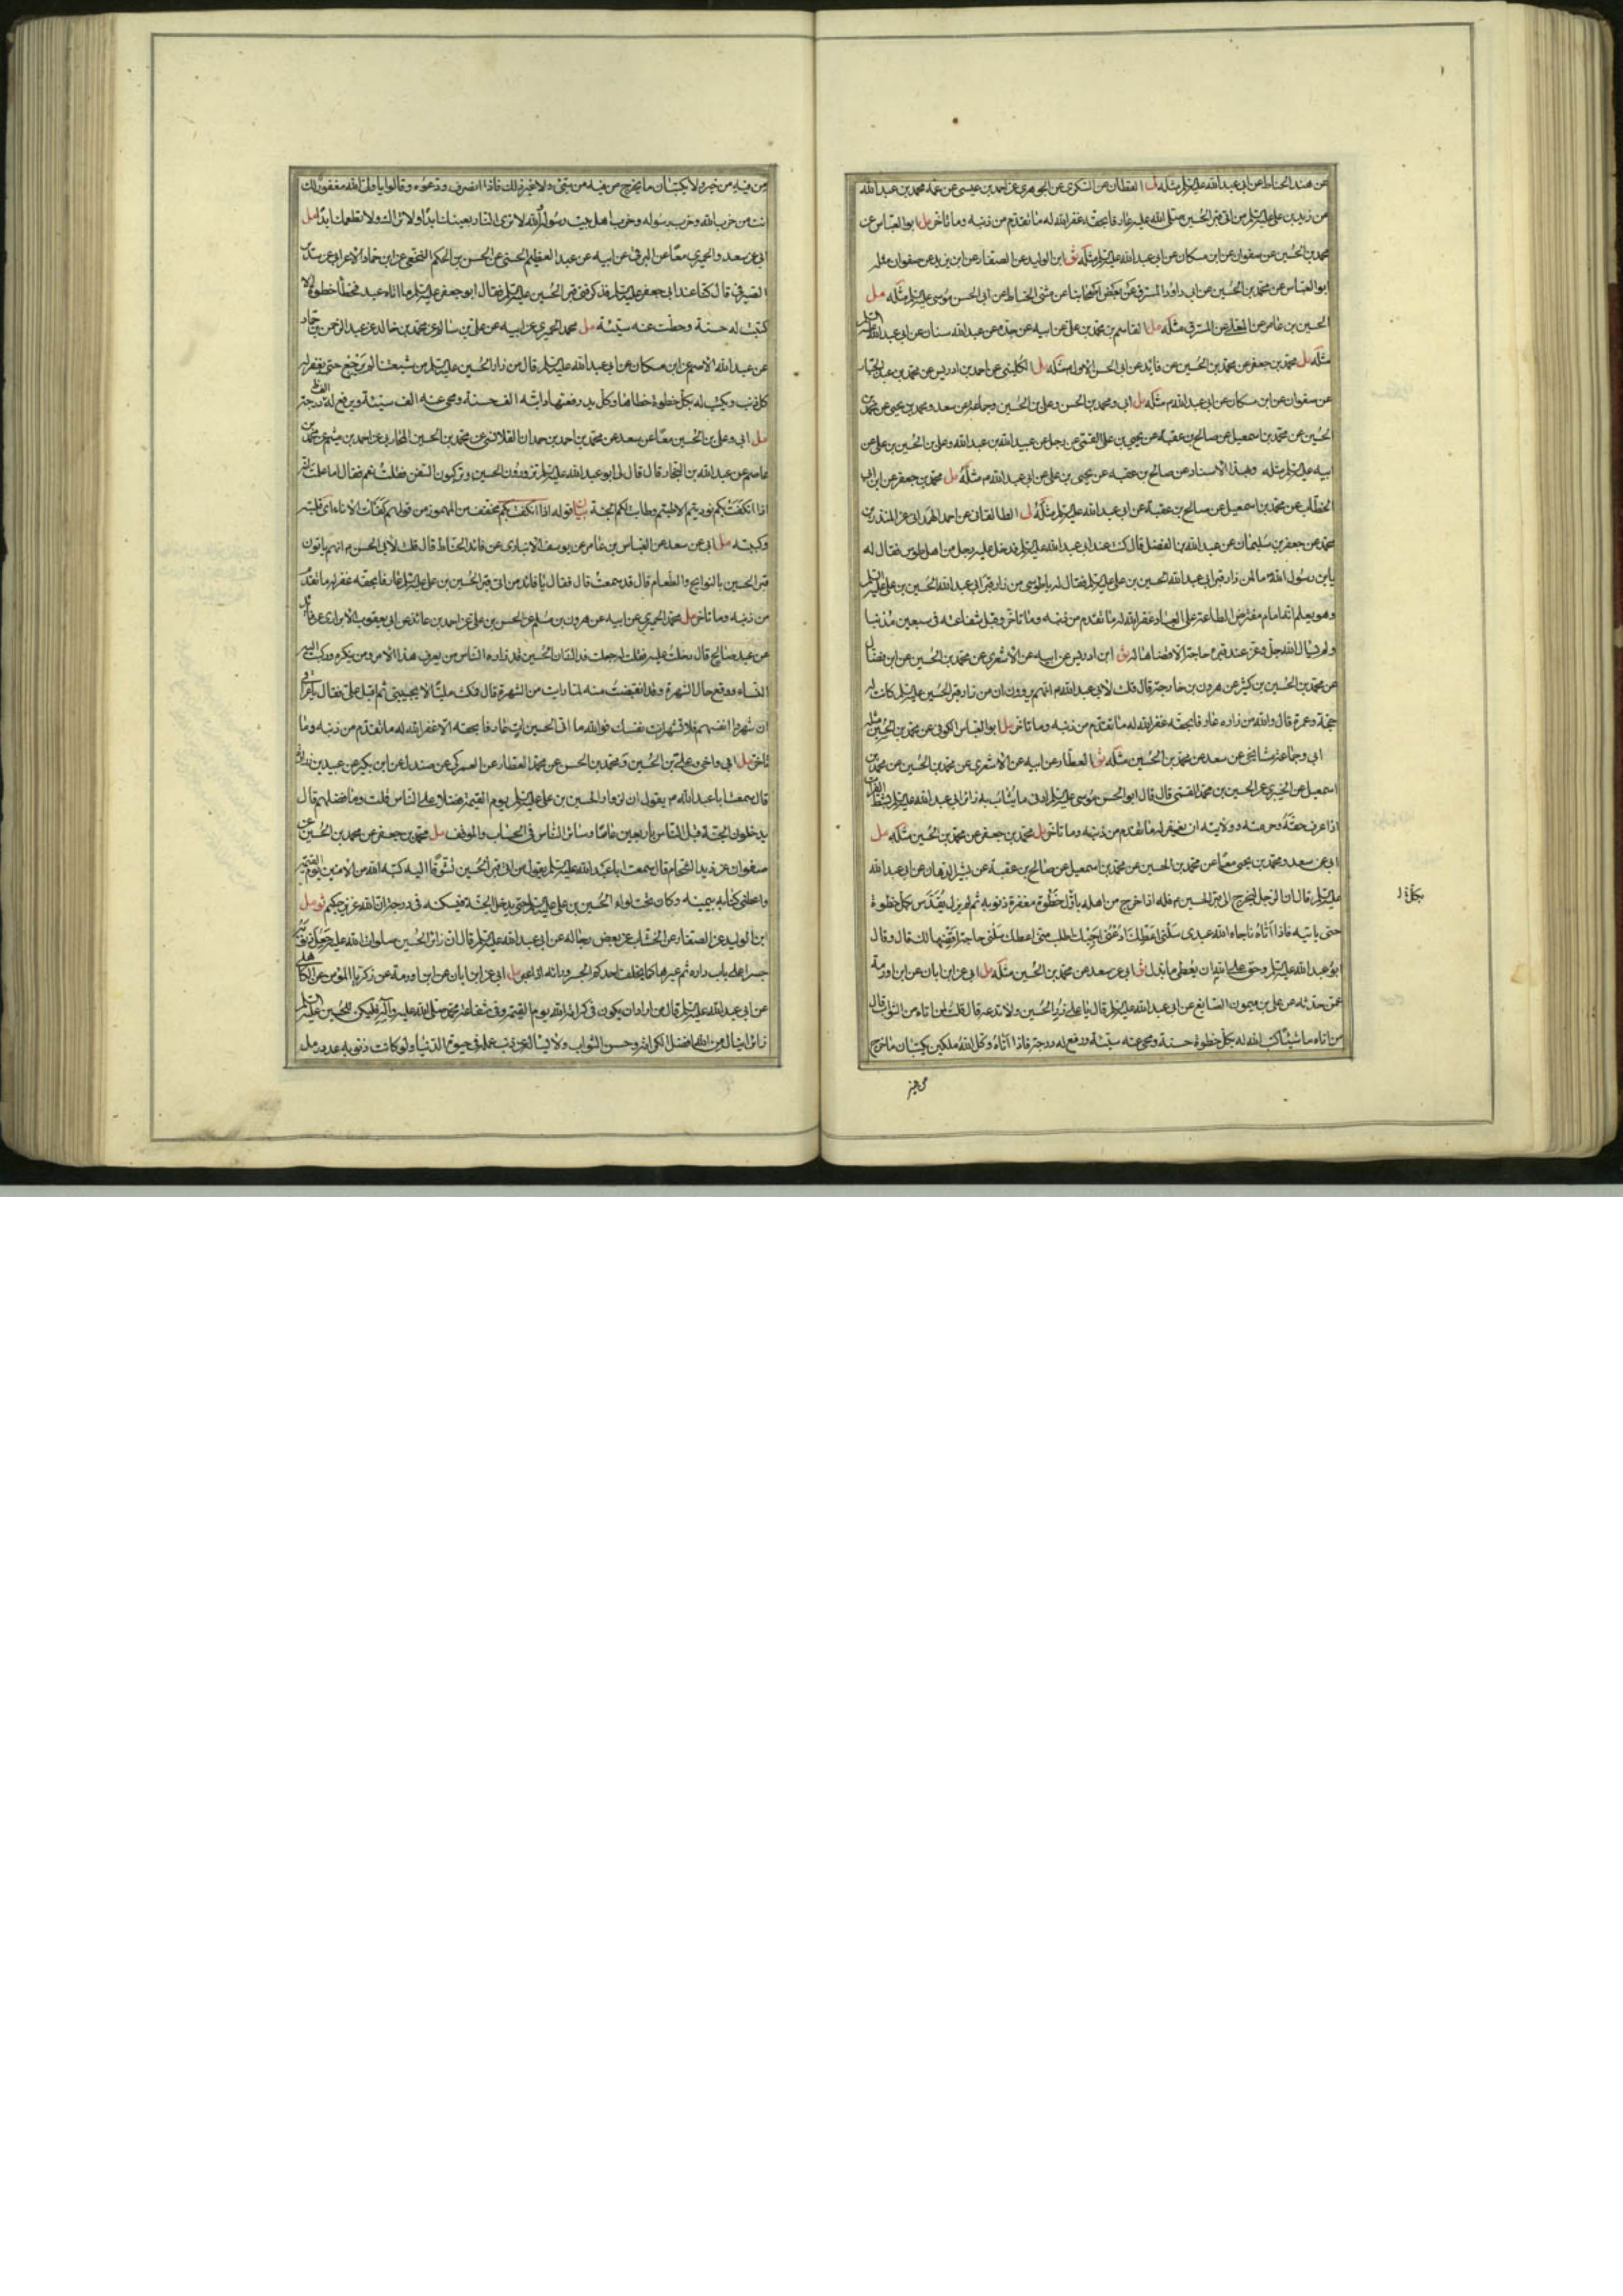 عن هند الحناط عن ابي عبد الله عليه السلم مثله ل القطان عن السكري عن الجوهري عن احمد بن عيسى عن عمه محمد بن عبد الله
عن زيد بن علي عليه السلم من اتى قبر الحسين صلى الله عليه عارفا بحقه غفر الله له ما تقدم من ذنبه وما تاخر مل ابو العباس عن
محمد بن الحسين عن صفوان عن ابن مسكان عن ابي عبد الله عليه السلم مثله ثو ابن الوليد عن الصفار عن ابن يزيد عن صفوان مثله
ابو العباس عن محمد بن الحسين عن ابي داود المسترق عن بعض اصحابنا عن مثنى الحناط عن ابي الحسن موسى عليه السلم مثله مل
الحسين بن عامر عن المعلى عن المسترق مثله مل القاسم بن محمد بن علي عن ابيه عن جده عن عبد الله سنان عن ابي عبد الله السلم
مثله مل محمد بن جعفر عن محمد بن الحسين عن قائد عن ابي الحسن الاول مثله مل الكليني عن احمد بن ادريس عن محمد بن عبد الجبار
عن صفوان عن ابن مسكان عن ابي عبد الله م مثله مل ابي ومحمد بن الحسن وعلي بن الحسين وجماعة عن سعد ومحمد بن يحيى عن محمد بن
الحسين عن محمد بن اسمعيل عن صالح بن عقبة عن يحيى بن علي القمي عن رجل عن عبيد الله بن عبد الله وعلي بن الحسين بن علي عن
ابيه عليه السلم مثله وبهذا الاسناد عن صالح بن عقبه عن يحيى بن علي عن ابي عبد الله م مثله مل محمد بن جعفر عن ابن ابي
الخطاب عن محمد بن اسمعيل عن صالح بن عقبة عن ابي عبد الله عليه السلم مثله لى الطالقاني عن احمد الهمداني عن المنذر بن
محمد عن جعفر بن سليمان عن عبد الله بن الفضل قال كنت عند ابي عبد الله عليه السلم فدخل عليه رجل من اهل طوس فقال له
يابن رسول الله ما لمن زار قبر ابي عبد الله الحسين بن علي عليه السلم فقال له يا طوسي من زار قبر ابي عبد الله الحسين بن علي عليه السلم
وهو يعلم انه امام مفترض الطاعة على العباد غفر الله له ما تقدم من ذنبه وما تاخر وقبل شفاعته في سبعين مذنبا
ولم يسال الله جل وعز عند قبره حاجة الا قضاها له ثو ابن ادريس عن ابيه عن الاشعري عن محمد بن الحسين عن ابن فضال
عن محمد بن الحسين بن كثير عن هرون بن خارجة قال قلت لابي عبد الله م انهم يروون ان من زار قبر الحسين عليه السلم كانت له
حجة وعمرة قال والله من زاره عارفا بحقه غفر الله له ما تقدم من ذنبه وما تاخر مل ابو العباس الكوفي عن محمد بن الحسين مثله
ابي وجماعة مشايخي عن سعد عن محمد بن الحسين مثله ثو العطار عن ابيه عن الاشعري عن محمد بن الحسين عن محمد بن
اسمعيل عن الخيبري عن الحسين بن محمد القمي قال قال ابو الحسن موسى عليه السلم ادنى ما يثاب به زائر ابي عبد الله عليه السلم بشط الفرات
اذا عرف حقه وحرمته وولايته ان يغفر له ما تقدم من ذنبه وما تاخر مل محمد بن جعفر عن محمد بن الحسين مثله مل
ابي عن سعد ومحمد بن يحيى معا عن محمد بن الحسين عن محمد بن اسمعيل عن صالح بن عقبة عن بشير الدهان عن ابي عبد الله
عليه السلم قال ان الرجل ليخرج الى قبر الحسين م فله اذا خرج من اهله باول خطوة مغفرة ذنوبه ثم لم يزل يقدس بكل خطوة
بكل خ ل
حتى ياتيه فاذا اتاه ناجاه الله عبدي سلني اعطك ادعني اجبك اطلب مني اعطك سلني حاجة اقضها لك قال وقال
ابو عبد الله عليه السلم وحق على الله ان يعطي ما بذل ثو ابي عن سعد عن محمد بن الحسين مثله مل ابي عن ابن ابان عن ابن اورمة
عمن حدثه عن علي بن ميمون الصايغ عن ابي عبد الله عليه السلم قال يا علي زر الحسين ولا تدعه قال قلت لمن اتاه من الثواب قال
من اتاه ماشيا كتب الله له بكل خطوة حسنة ومحى عنه سيئة ورفع له درجة فاذا اتاه وكل الله ملكين يكتبان ما خرج
من فيه
من فيه من خير ولا يكتبان ما يخرج من فيه من شئ ولا غير ذلك فاذا انصرف ودعوه وقالوا يا ولي الله مغفور لك
انت من حزب الله وحزب رسوله وحزب اهل بيت رسول الله لا ترى النار بعينك ابدا ولا تراك ولا تطعمك ابدا مل
ابي عن سعد والحميري معا عن البرقي عن ابيه عن عبد العظيم الحسني عن الحسن بن الحكم النخعي عن ابن حماد الاعرابي عن سدير
الصيرفي قال كنا عند ابي جعفر عليه السلم فذكر فتى قبر الحسين عليه السلم فقال ابو جعفر عليه السلم ما اتاه عبد فخطا خطوة الا
كتبت له حسنة وحطت عنه سيئة مل محمد الحميري عن ابيه عن علي بن محمد بن سالم عن محمد بن خالد عن عبد الله بن حماد
عن عبد الله الاصم عن ابن مسكان عن ابي عبد الله عليه السلم قال من زار الحسين عليه السلم من شيعتنا لم يرجع حتى يغفر له
كل ذنب ويكتب له بكل خطوة خطاها وكل يد رفعتها دابته الف حسنة ومحى عنه الف سيئة ويرفع له الف درجة
مل ابي وعلي بن الحسين معا عن سعد عن محمد بن احمد بن حمدان القلانسي عن محمد بن الحسين المحاربي عن احمد بن ميثم عن محمد بن
عاصم عن عبد الله بن النجار قال قال لي ابو عبد الله عليه السلم تزورون الحسين وتركبون السفن فقلت نعم فقال اما علمت انه
اذا انكفت بكم نوديتم الا طبتم وطابت لكم الجنة بيان قوله اذا انكفت بكم مخفف من المهموز من قولهم كفات الاناء اي قلبته
وكببته مل ابي عن سعد عن العباس بن عامر عن يوسف الانباري عن قائد الحناط قال قلت لابي الحسن م انهم ياتون
قبر الحسين بالنوايح والطعام قال قد سمعت قال فقال يا قائد من اتى قبر الحسين بن علي عليه السلم عارفا بحقه غفر له ما تقدم
من ذنبه وما تاخر مل محمد الحميري عن ابيه عن هرون بن مسلم عن الحسن بن علي عن احمد بن عائذ عن ابي يعقوب الابزاري عن قائد
عن عبد صالح قال دخلت عليه فقلت له جعلت فداك ان الحسين قد زاره الناس من يعرف هذا الامر ومن ينكره وركبت اليه
النساء ووقع حال الشهرة وقد انقبضت منه لما رايت من الشهرة قال فمكث مليا لا يجيبني ثم اقبل علي فقال يا عراقي
ان شهروا انفسهم فلا تشهر انت نفسك فوالله ما اتى الحسين ات عارفا بحقه الا غفر الله له ما تقدم من ذنبه وما
تاخر مل ابي واخي وعلي بن الحسين ومحمد بن الحسن عن محمد العطار عن العمركي عن صندل عن ابن بكير عن عبيد بن زرارة
قال سمعت ابا عبد الله م يقول ان لزوار الحسين بن علي عليه السلم يوم القيمة فضلا على الناس قلت وما فضلهم قال
يدخلون الجنة قبل الناس باربعين عاما وسائر الناس في الحساب والموقف مل محمد بن جعفر عن محمد بن الحسين عن
صفوان عن زيد الشحام قال سمعت ابا عبد الله عليه السلم يقول من اتى قبر الحسين تشوقا اليه كتبه الله من الامنين يوم القيمة
واعطي كتابه بيمينه وكان تحت لواء الحسين بن علي عليه السلم حتى يدخل الجنة فيسكنه في درجته ان الله عزيز حكيم ثو مل
ابن الوليد عن الصفار عن الخشاب عن بعض رجاله عن ابي عبد الله عليه السلم قال ان زائر الحسين صلوات الله عليه جعل ذنوبه
جسرا على باب داره ثم عبرها كما يخلف احدكم الجسر وراءه اذا عبر مل ابي عن ابن ابان عن ابن اورمة عن زكريا المؤمن عن الكاهلي
عن ابي عبد الله عليه السلم قال من اراد ان يكون في كرامة الله يوم القيمة وفي شفاعة محمد صلى الله عليه وآله فليكن للحسين عليه السلم
زائرا ينال من الله افضل الكرامة وحسن الثواب ولا يساله عن ذنب عمله في حيوة الدنيا ولو كانت ذنوبه عدد رمل